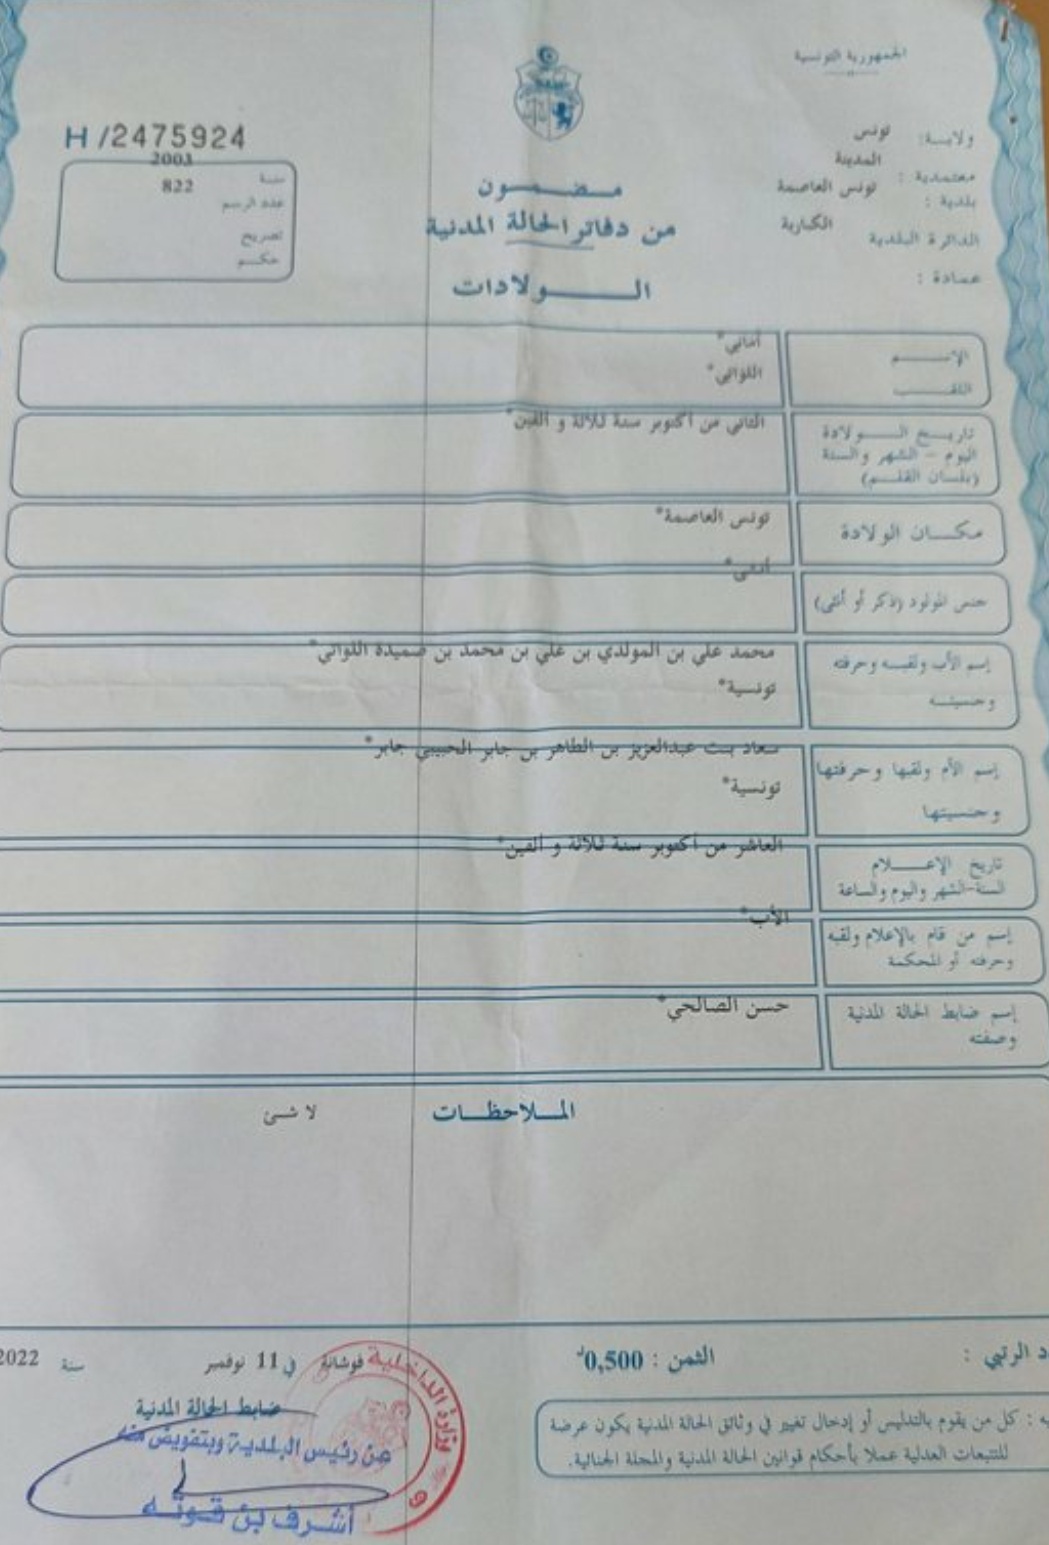 الجمهورية التونسية
ولاية: تونس
المدينة
معتمدية :
بلدية : تونس العاصمة
الدائرة البلدية الكبارية
عمادة :
H/2475924
سنة 2003
عدد الرسم 822
تصريح
حكم
مضمون
من دفاتر الحالة المدنية
الولادات
الإسم أماني*
اللقب اللواتي*
تاريخ الولادة
اليوم - الشهر والسنة
(بلسان القلم)
الثاني من أكتوبر سنة ثلاثة و ألفين*
مكان الولادة تونس العاصمة*
جنس المولود (ذكر أو أنثى) أنثى*
إسم الأب ولقبه وحرفته
وجنسيته
محمد علي بن المولدي بن علي بن محمد بن صميدة اللواتي*
تونسية*
إسم الأم ولقبها وحرفتها
وجنسيتها
سعاد بنت عبدالعزيز بن الطاهر بن جابر الحبيبي جابر*
تونسية*
تاريخ الإعلام
السنة-الشهر واليوم والساعة
العاشر من أكتوبر سنة ثلاثة و ألفين*
إسم من قام بالإعلام ولقبه
وحرفته أو المحكمة
الأب*
إسم ضابط الحالة المدنية
وصفته
حسن الصالحي*
الملاحظات لا شئ
د الرتبي :
الثمن : 0,500د
فوشانة في 11 نوفمبر سنة 2022
ضابط الحالة المدنية
عن رئيس البلدية وبتفويض منه
أشرف بن قوته
وزارة الداخلية
يه : كل من يقوم بالتدليس أو إدخال تغيير في وثائق الحالة المدنية يكون عرضة
للتتبعات العدلية عملا بأحكام قوانين الحالة المدنية والمجلة الجنائية.